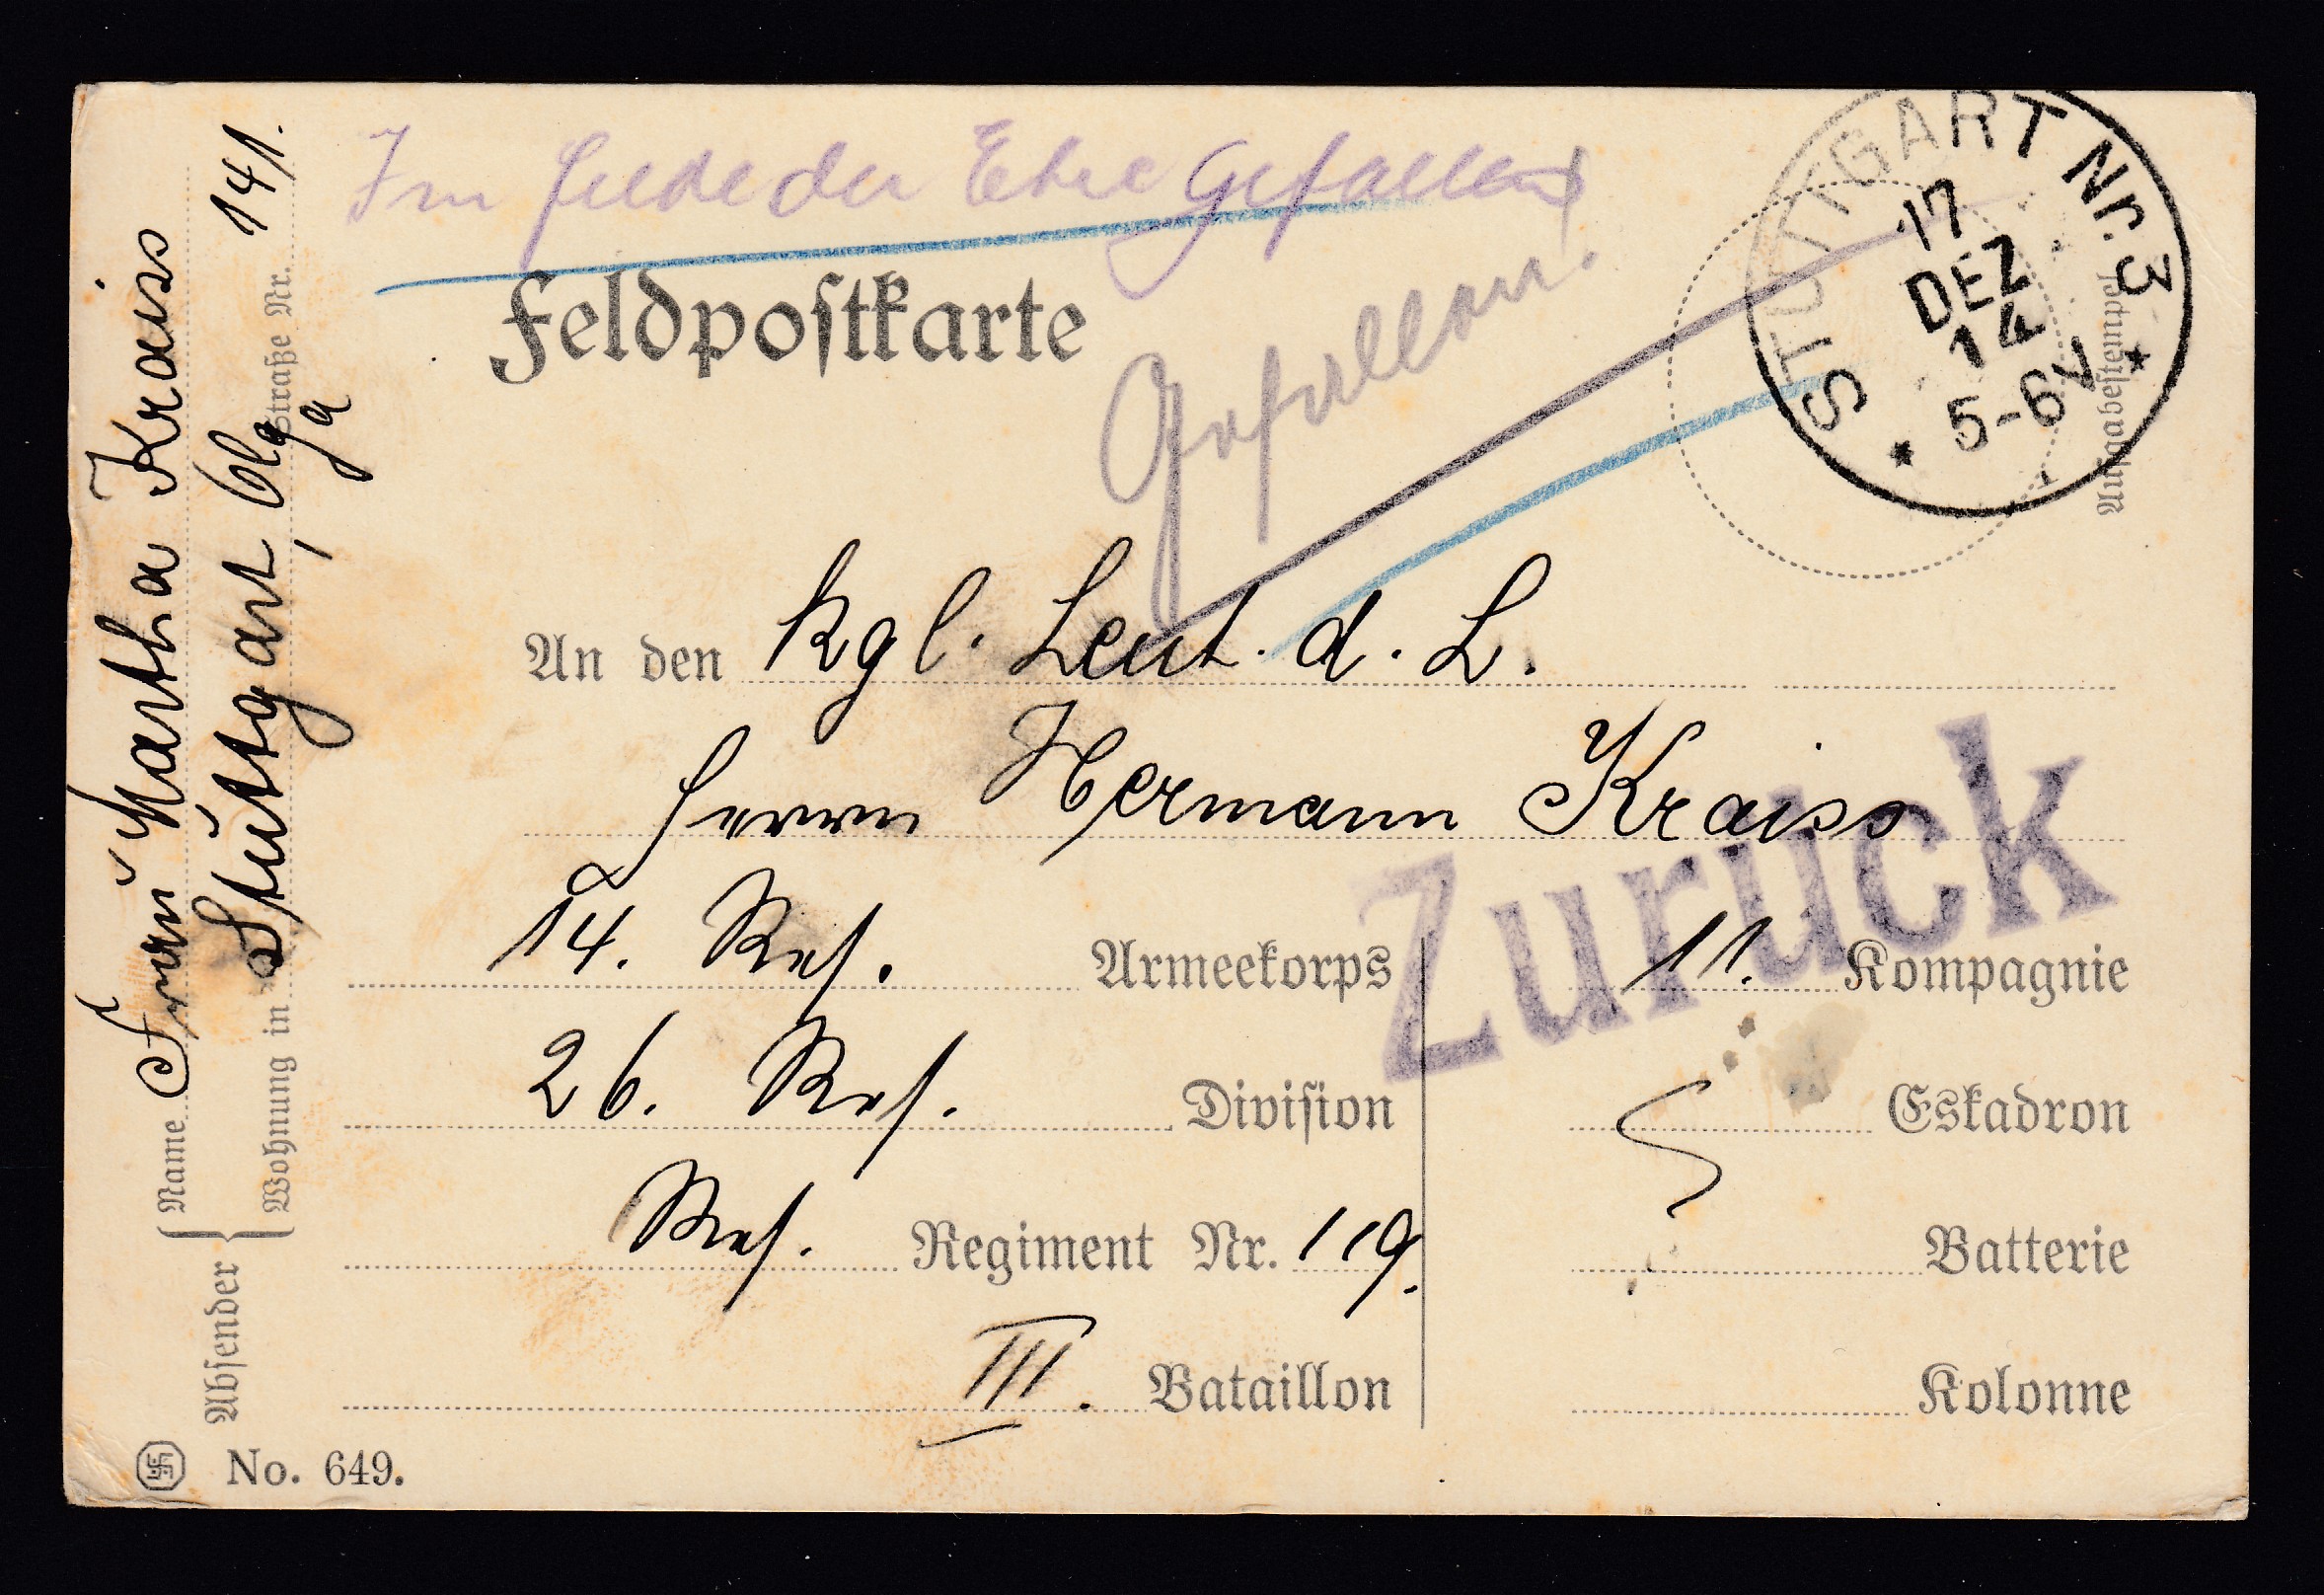 Im Felde der Ehre Gefallen
Feldpostkarte
Gefallen.
STUTTGART Nr. 3
17
DEZ
14
5-6V
Aufgabestempel
An den kgl. Leut. d. L.
Herrn Hermann Kraiss
Zurück
14. Res. Armeekorps
11. Kompagnie
26. Res. Division
Eskadron
Res. Regiment Nr. 119.
Batterie
III. Bataillon
Kolonne
Absender
Name Frau Martha Kraiss
Wohnung in Stuttgart, Olga Straße Nr. 141.
No. 649.